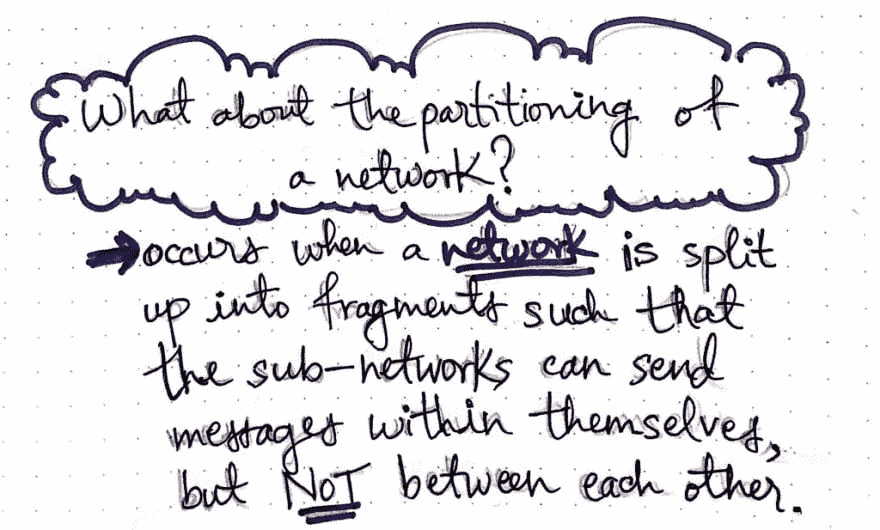 What about the partitioning of
a network?
occurs when a network is split
up into fragments such that
the sub-networks can send
messages within themselves,
but NOT between each other.